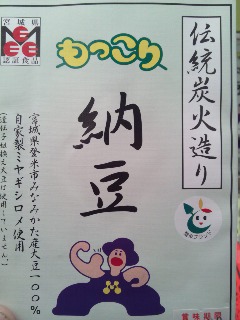 宮城県
認証食品
もっこり
伝統炭火造り
納豆
宮城県登米市みなみかた産大豆一〇〇％
自家製ミヤギシロメ使用
(遺伝子組換え大豆は使用していません。)
賞味期限